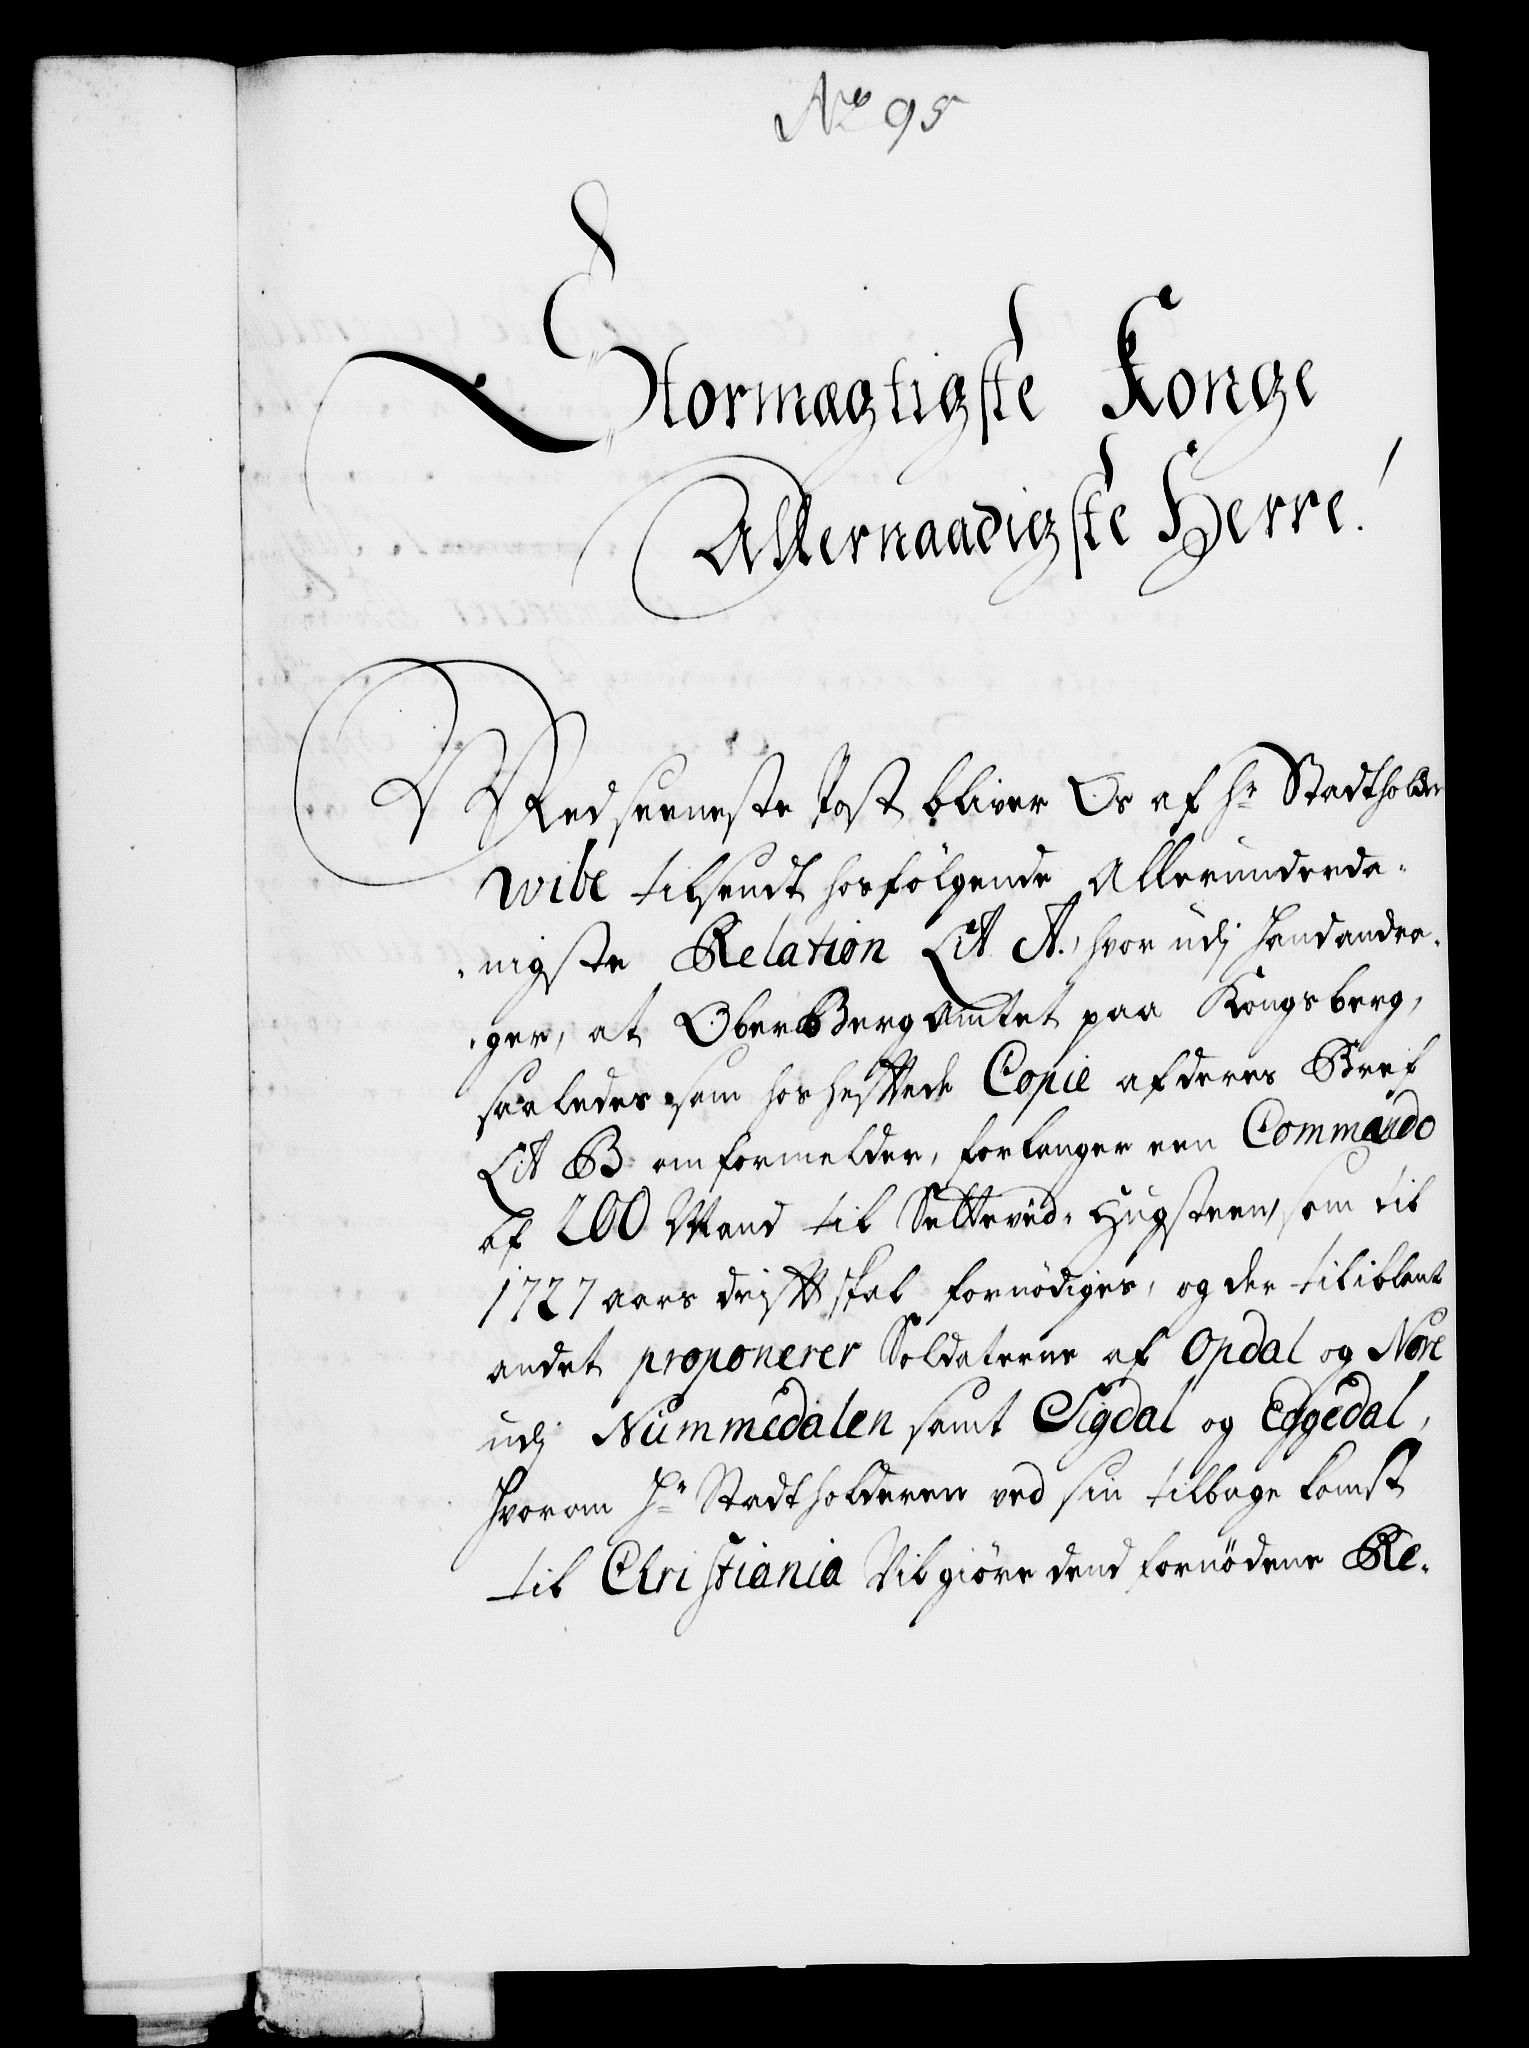 No 95
Stormægtigste Konge
Allernaadigste Herre!
Med seeneste Post bliver Os af Hr Stadtholder
Wibe tilsendt hosfölgende Allerunderda-
nigste Relation Lit A., hvor udj handandra-
ger, at OberBergAmtet paa Kongsberg,
saaledes som hoshefftede Copie af deres Bref
Lit B omformelder, forlanger een Commando
af 200 Mand til Setteved-Hugsteen, som til
1727 aars drifft skal fornödiges, og der til iblant
andet proponerer Soldaterne af Opdal og Nore
udj Nummedalen samt Sigdal og Eggedal,
hvorom Hr Stadtholderen ved sin tilbage komst
til Christiania vil giöre dend fornödene Re-